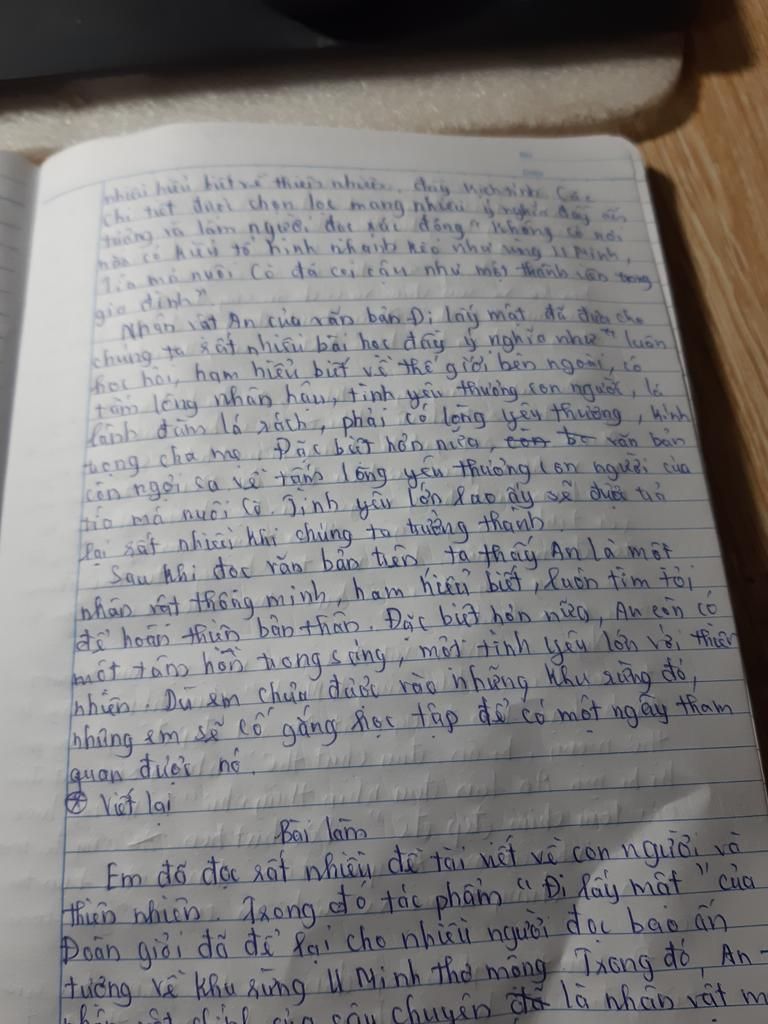 nhiều hiểu biết về thiên nhiên, đầy kịch tính. Các
chi tiết được chọn lọc mang nhiều ý nghĩa đầy ấn
tượng và làm người đọc xúc động "không có nơi
nào có kiểu tổ hình nhanh kèo như vùng U Minh,
Tía má nuôi Cò đã coi cậu như một thành viên trong
gia đình".
Nhân vật An của văn bản Đi lấy mật đã đưa cho
chúng ta rất nhiều bài học đầy ý nghĩa như " luôn
học hỏi, ham hiểu biết về thế giới bên ngoài, có
tấm lòng nhân hậu, tình yêu thương con người, lá
lành đùm lá rách, phải có lòng yêu thương, kính
trọng cha mẹ. Đặc biệt hơn nữa, văn bản
còn ngợi ca về tấm lòng yêu thương con người của
tía má nuôi Cò. Tình yêu lớn lao ấy sẽ được trả
lại rất nhiều khi chúng ta trưởng thành.
Sau khi đọc văn bản trên ta thấy An là một
nhân vật thông minh, ham hiểu biết, luôn tìm tòi
để hoàn thiện bản thân. Đặc biệt hơn nữa, An còn có
một tâm hồn trong sáng, một tình yêu lớn với thiên
nhiên. Dù em chưa được vào những khu rừng đó,
nhưng em sẽ cố gắng học tập để có một ngày tham
quan được nó.
Viết lại
Bài làm
Em đã đọc rất nhiều đề tài viết về con người và
thiên nhiên. Trong đó tác phẩm " Đi lấy mật " của
Đoàn giỏi đã để lại cho nhiều người đọc bao ấn
tượng về khu rừng U Minh thơ mộng. Trong đó, An -
của câu chuyện là nhân vật m